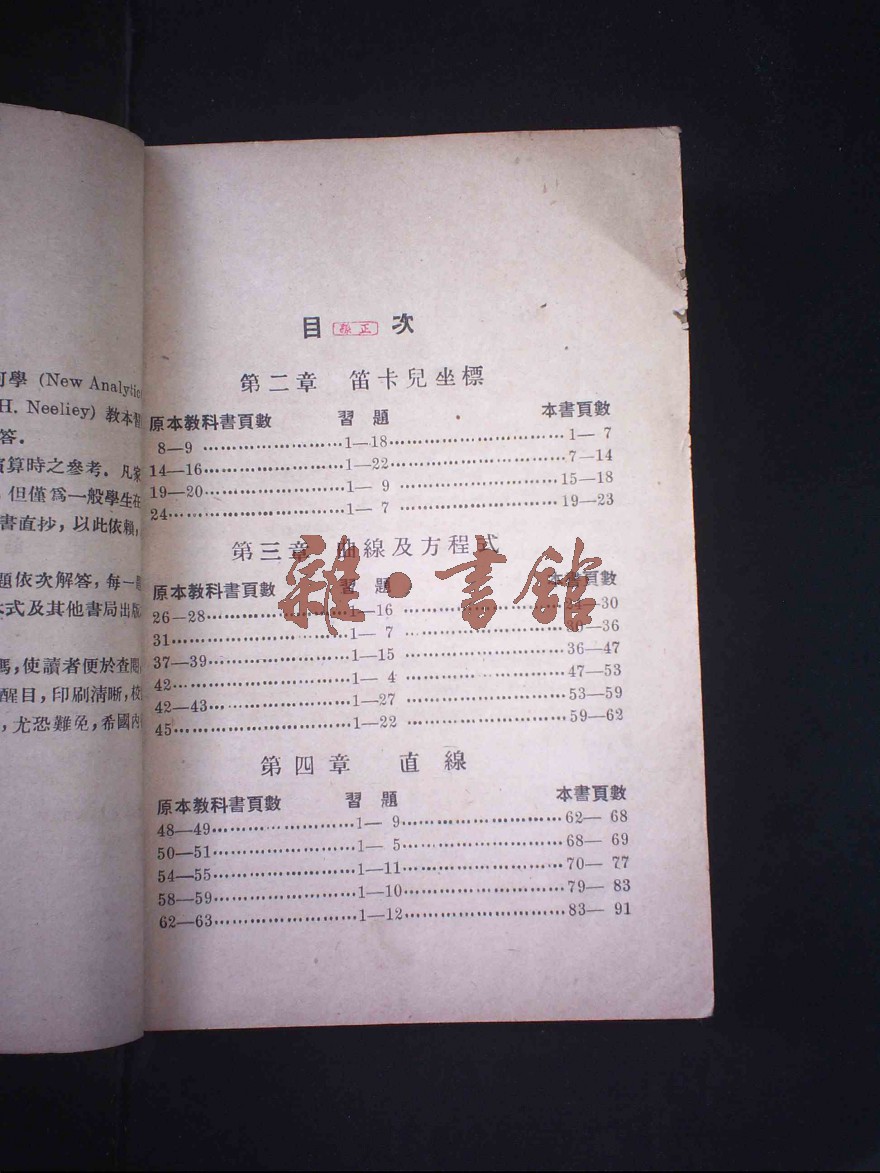 何學 (New Analytic
H. Neeliey) 教本習
答.
演算時之參考. 凡家
, 但僅爲一般學生在
書直抄, 以此依賴,
題依次解答, 每一題
本式及其他書局出版
碼, 使讀者便於查閱
醒目, 印刷清晰, 校
, 尤恐難免, 希國內
目 張正 次
第二章 笛卡兒坐標
原本教科書頁數 習題 本書頁數
8—9 1—18 1— 7
14—16 1—22 7—14
19—20 1— 9 15—18
24 1— 7 19—23
第三章 曲線及方程式
原本教科書頁數 習題 本書頁數
26—28 1—16 24—30
31 1— 7 30—36
37—39 1—15 36—47
42 1— 4 47—53
42—43 1—27 53—59
45 1—22 59—62
第四章 直線
原本教科書頁數 習題 本書頁數
48—49 1— 9 62— 68
50—51 1— 5 68— 69
54—55 1—11 70— 77
58—59 1—10 79— 83
62—63 1—12 83— 91
雜·書館